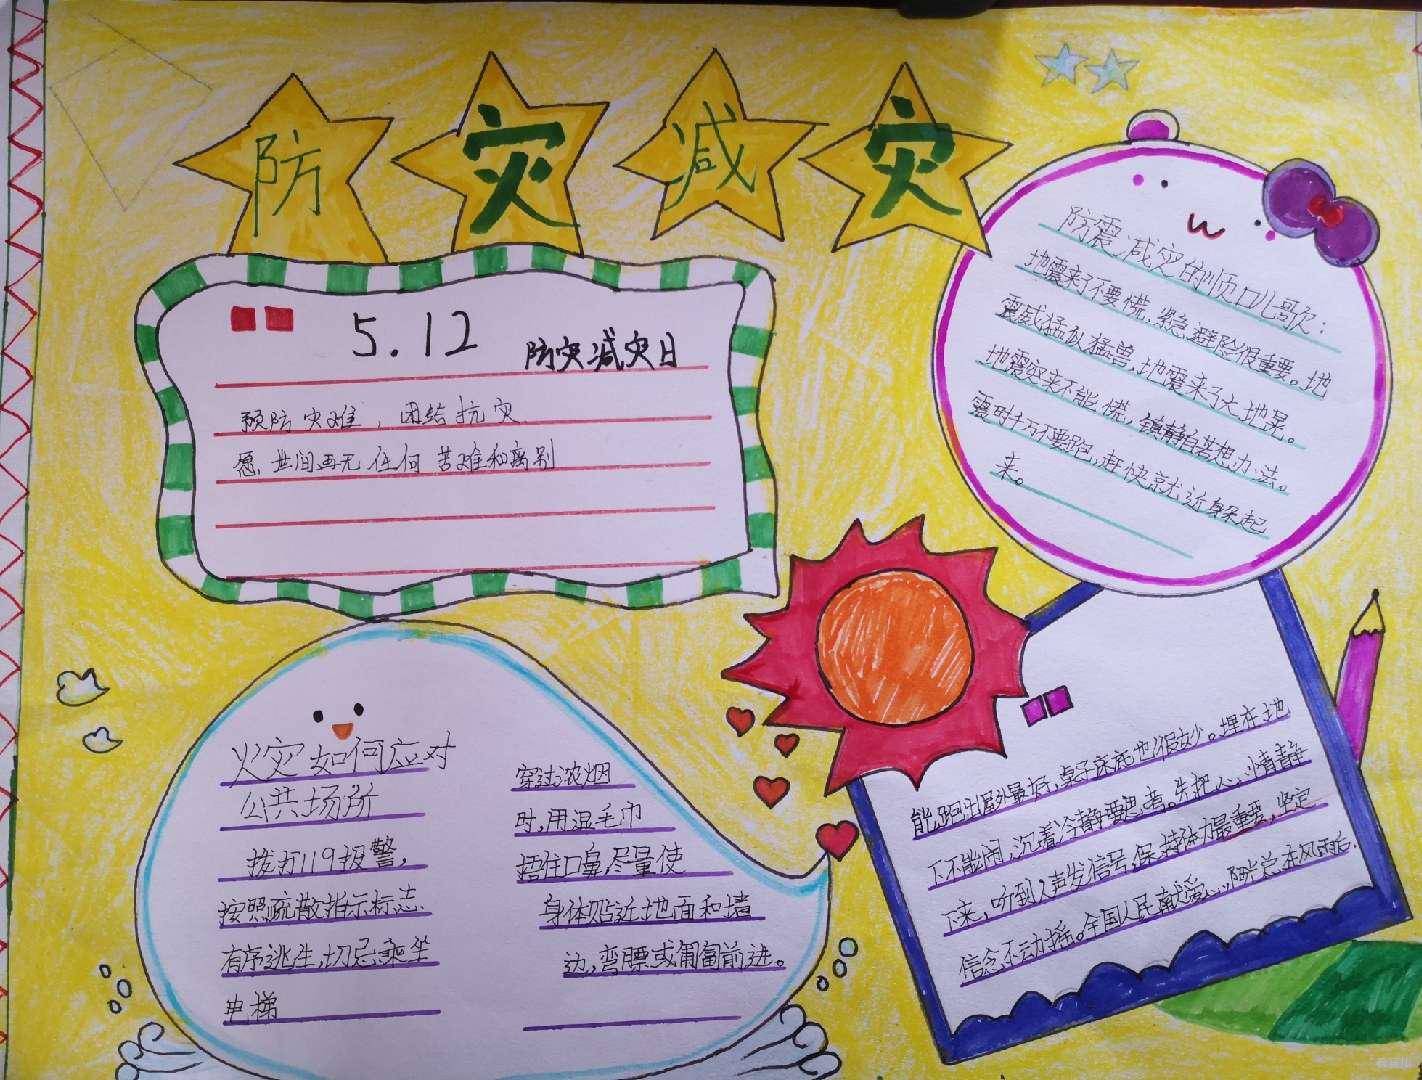 防灾减灾
5.12 防灾减灾日
预防灾难，团结抗灾
愿世间再无任何苦难和离别
防震减灾的顺口儿歌：
地震来了不要慌，紧急避险很重要。地
震威猛似猛兽，地震来了大地晃。
地震突来不能慌，镇静自若想办法。
震时千万不要跑，赶快就近身躲起
来。
火灾如何应对
公共场所
拨打119报警，
按照疏散指示标志
有序逃生，切忌乘坐
电梯
穿过浓烟
时，用湿毛巾
捂住口鼻尽量使
身体贴近地面和墙
边，弯腰或匍匐前进。
能跑出屋外最好，桌子床底也很妙。埋在地
下不能闹，沉着冷静要思考。先把人心情静
下来，听到人声发信号，保持体力最重要，坚定
信念不动摇。全国人民献爱心，阳光总在风雨后.